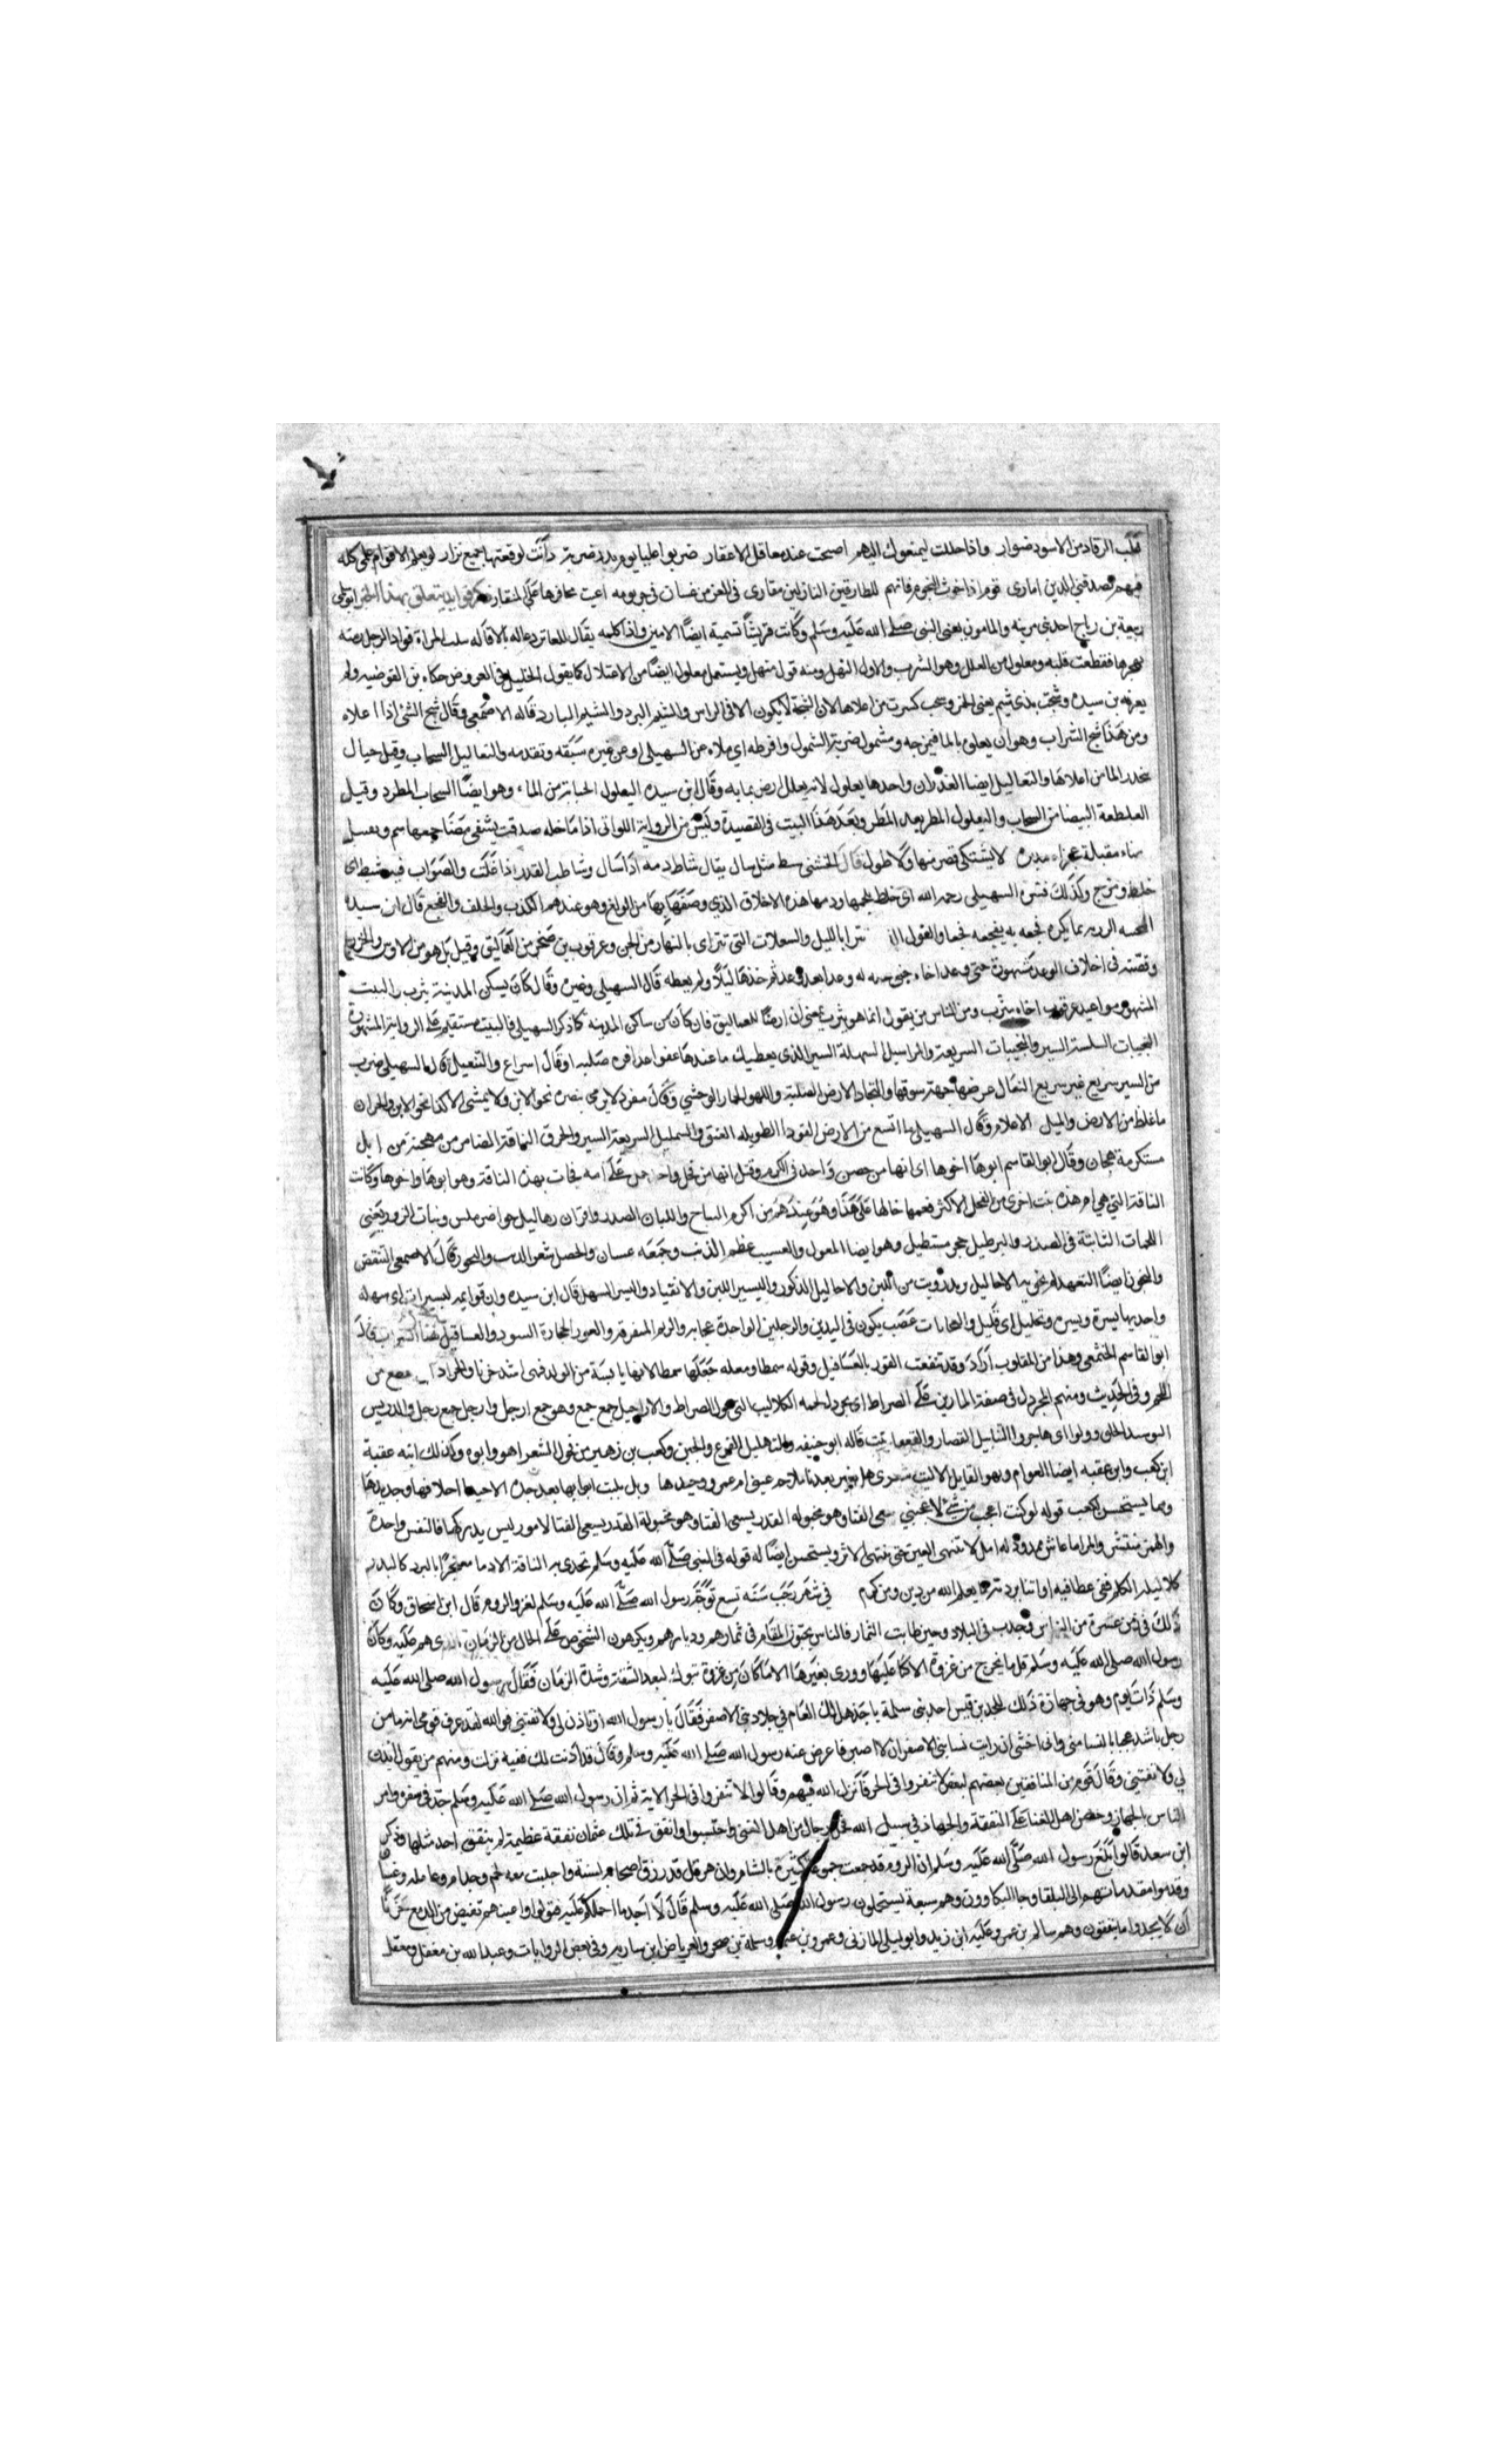 غلب الرقاد من الاسود ضوار واذا حللت ليمنعوك اليهم اصبحت عند معاقل الاعقار ضربوا عليا يوم بدر ضربة دانت لوقعتها جميع نزار لو يعلم الاقوام علمي كله
فيهم لصدقني الذين اماري قوم اذا خوت النجوم فانهم للطارقين النازلين مقاري في العز من غسان في جرثومه اعيت محافرها على المنقار ذكر فوايد يتعلق بهذا الخبر
ربيعة بن رياح احد بني مزينه والمامون يعني النبي صلى الله عليه وسلم وكانت قريشا تسمية ايضا الامين واذا كلمه يقال للعاثر دعا له بالاقاله
فقطعت قلبه ومعلول من العلل وهو الشرب والاول النهل ومنه قول منهل ويستعمل معلول ايضا من الاعتلال كما يقول الخليل في العروض حكاه بن القوطيه ولم
يعرفه بن سيده وشجت بذي شبم يعني الخمر كسرت من اعلاها لان الشجة لا يكون الا في الراس والشبم البرد والشبم البارد قاله الاصمعي وقال شج الشئ اذا علاه
ومن هذا شج الشراب وهو ان يعلوه بالما فيمزجه ومشمول ضربته الشمول وافرطه اي ملاه عن السهيلي وعن غيره سبقه وتقدمه والتعاليل السحاب وقيل جبال
ينحدر الما من اعلاها والتعاليل ايضا الغدران واحدها يعلول لانه يعلل الارض بمايه وقال ابن سيده اليعلول الحبابة من الماء وهو ايضا السحاب المطرد وقيل
القطعة البيضا من السحاب واليعلول المطر بعد المطر وبعد هذا البيت في القصيدة
هيفاء مقبلة عجزاء مدبره لا يشتكي قصر منها ولا طول قال الخشني سط مثل سال يقال شاط دمه اذا سال وشاطت القدر اذا غلت والصواب فيه شيط اي
خلط ومزج وكذلك فسره السهيلي رحمه الله اي خلط بلحمها ودمها هذه الاخلاق الذي وصفها بها من الولع وهو عندهم الكذب والخلف والفجع قال ابن سيده
الفجيعه الرزيه بما يكره فجعه به يفجعه فجعا والغول التي تترايا بالليل والسعلات التي تترااى بالنهار من الجن وعرقوب بن صخر من العماليق وقيل بل هو من الاوس والخزرج
وقصته في اخلاف الوعد مشهورة حين وعد اخاه له وعدا بعد وعد ثم جذها ليلا ولم يعطه قال السهيلي وغيره وقال كان يسكن المدينة يثرب والبيت
المشهور مواعيد عرقوب اخاه بيثرب ومن الناس من يقول انما هو بيترب يعني ارضا للعماليق فان كان من ساكن المدينه كما ذكر السهيلي فالبيت مستقيم على الرواية المشهورة
النجيات السلسة السير والنجيبات السريعة والمراسيل السهلة السير الذي يعطيك ما عندها عفوا
من السير سريع غير سريع النقال
ما غلظ من الارض والميل الاعلام وقال السهيلي ما اتسع من الارض القودا الطويله العنق والشمليل السريعة السير والحرف الناقة الضامر من مهجنة من ابل
مستكرمة هجان وقال ابو القاسم ابوها اخوها اي انها من جنس واحد في الكرم وقيل انها من فحل واحد حمل على امه فجات بهذه الناقة وهو ابوها واخوها وكانت
الناقة التي هي ام هذه بنت اخرى من الفحل الاكبر فعمها خالها على هذا وهو عندهم من اكرم النتاج واللبان الصدر واقراب زهاليل خواصر ملس وبنات الزور يعني
اللحمات النابتة في الصدر والبرطيل حجر مستطيل وهو ايضا المعول والعسيب عظم الذنب وجمعه عسبان والخصل شعر الذنب والتخون قال الاصمعي التنقص
والتخون ايضا التعهد لم تخونه الاحاليل ويد رويت من اللبن والاحاليل الذكور واليسير اللين والانقياد واليسر السهل قال ابن سيده وان قوايمه ليسرات اي سهله
واحدتها يسرة ويسره وتحليل اي قليل والعجايات عصب يكون في اليدين والرجلين الواحدة عجايه والزيم المتفرقة والقور الحجارة السود والعساقيل هنا السراب قال
ابو القاسم الخثعمي وهذا من المقلوب اراد وقد تلفعت القور بالعساقيل وقوله سمطا ومعله جعلها سمطا لانها يايسة من الولد فهي اشد حزنا والخراديل قطع من
اللحم وفي الحديث ومنهم المخردل في صفة المارين على الصراط اي يخردل لحمه الكلاليب التي حول الصراط والاراجيل جمع جمع وهو جمع ارجل وارجل جمع رجل والدريس
الثوب الخلق وزولوا اي هاجروا التنابيل القصار والقفعا نبت قاله ابو حنيفه والتهليل الفزع والجبن وكعب بن زهير من فحول الشعرا هو وابوه وكذلك ابنه عقبة
ابن كعب وابن عقبه ايضا العوام وهو القايل الا ليت شعري هل تغير بعدنا ملاحة عيني ام عمرو وجيدها وهل بليت اثوابها بعد جدة الا حبذا اخلاقها وجديدها
ومما يستحسن لكعب قوله لو كنت اعجب من شئ لاعجبني سعى الفتا وهو مخبوله القدر يسعى الفتا لامور ليس يدركها فالنفس واحدة
والهم منتشر والمرا ما عاش ممدود له امل لا تنتهي العين حتى ينتهي الاثر ويستحسن ايضا له قوله في النبي صلى الله عليه وسلم تحدى به الناقة الادما معتجرا بالبرد كالبدر
جلا ليلة الظلم ففي عطافيه او اثنا بردته ما يعلم الله من دين ومن كرم في شهر رجب سنه تسع توجه رسول الله صلى الله عليه وسلم لغزو الروم قال ابن اسحاق وكان
ذلك في زمن عسرة من الناس وجدب في البلاد وحين طابت الثمار فالناس يحبون المقام في ثمارهم وديارهم ويكرهون الشخوص على الحال من الزمان الذي هم عليه وكان
رسول الله صلى الله عليه وسلم قل ما يخرج من غزوة الا كنا عليها ووري بغيرها الا ما كان من غزوة تبوك لبعد الشقة وشدة الزمان فقال رسول الله صلى الله عليه
وسلم ذات يوم وهو في جهازه ذلك للجد بن قيس احد بني سلمة يا جد هل لك العام في جلاد بني الاصفر فقال يا رسول الله او تاذن لي ولا تفتني فوالله لقد عرف قومي انه ما من
رجل باشد عجبا بالنسا مني واني اخشى ان رايت نسا بني الاصفر ان لا اصبر فاعرض عنه رسول الله صلى الله عليه وسلم وقال قد اذنت لك ففيه نزلت ومنهم من يقول ائذن
لي ولا تفتني وقال قوم من المنافقين بعضهم لبعض لا تنفروا في الحر فانزل الله فيهم وقالوا لا تنفروا في الحر الاية ثم ان رسول الله صلى الله عليه وسلم جد في سفره وامر
الناس بالجهاز وحض اهل الغنا على النفقة والجهاد في سبيل الله فحمل رجال من اهل الغنى واحتسبوا وانفق في تلك عثمان نفقة عظيمة لم ينفق احد مثلها وذكر
ابن سعد قالوا بلغ رسول الله صلى الله عليه وسلم ان الروم قد جمعت جموعا كثيرة بالشام وان هرقل قد رزق اصحابه لسنة واجلبت معه لخم وجذام وعامله وغسان
وقدموا مقدماتهم الى البلقا وجا البكاوون وهم سبعة يستحملون رسول الله صلى الله عليه وسلم قال لا اجد ما احملكم عليه فتولوا واعينهم تفيض من الدمع حزنا
ان لا يجدوا ما ينفقون وهم سالم بن عمير وعلبه ابن زيد وابو ليلى المازني وعمرو بن عنمه وسلمة بن صخر والعرباض ابن ساريه وفي بعض الروايات وعبد الله بن مغفل ومعقل